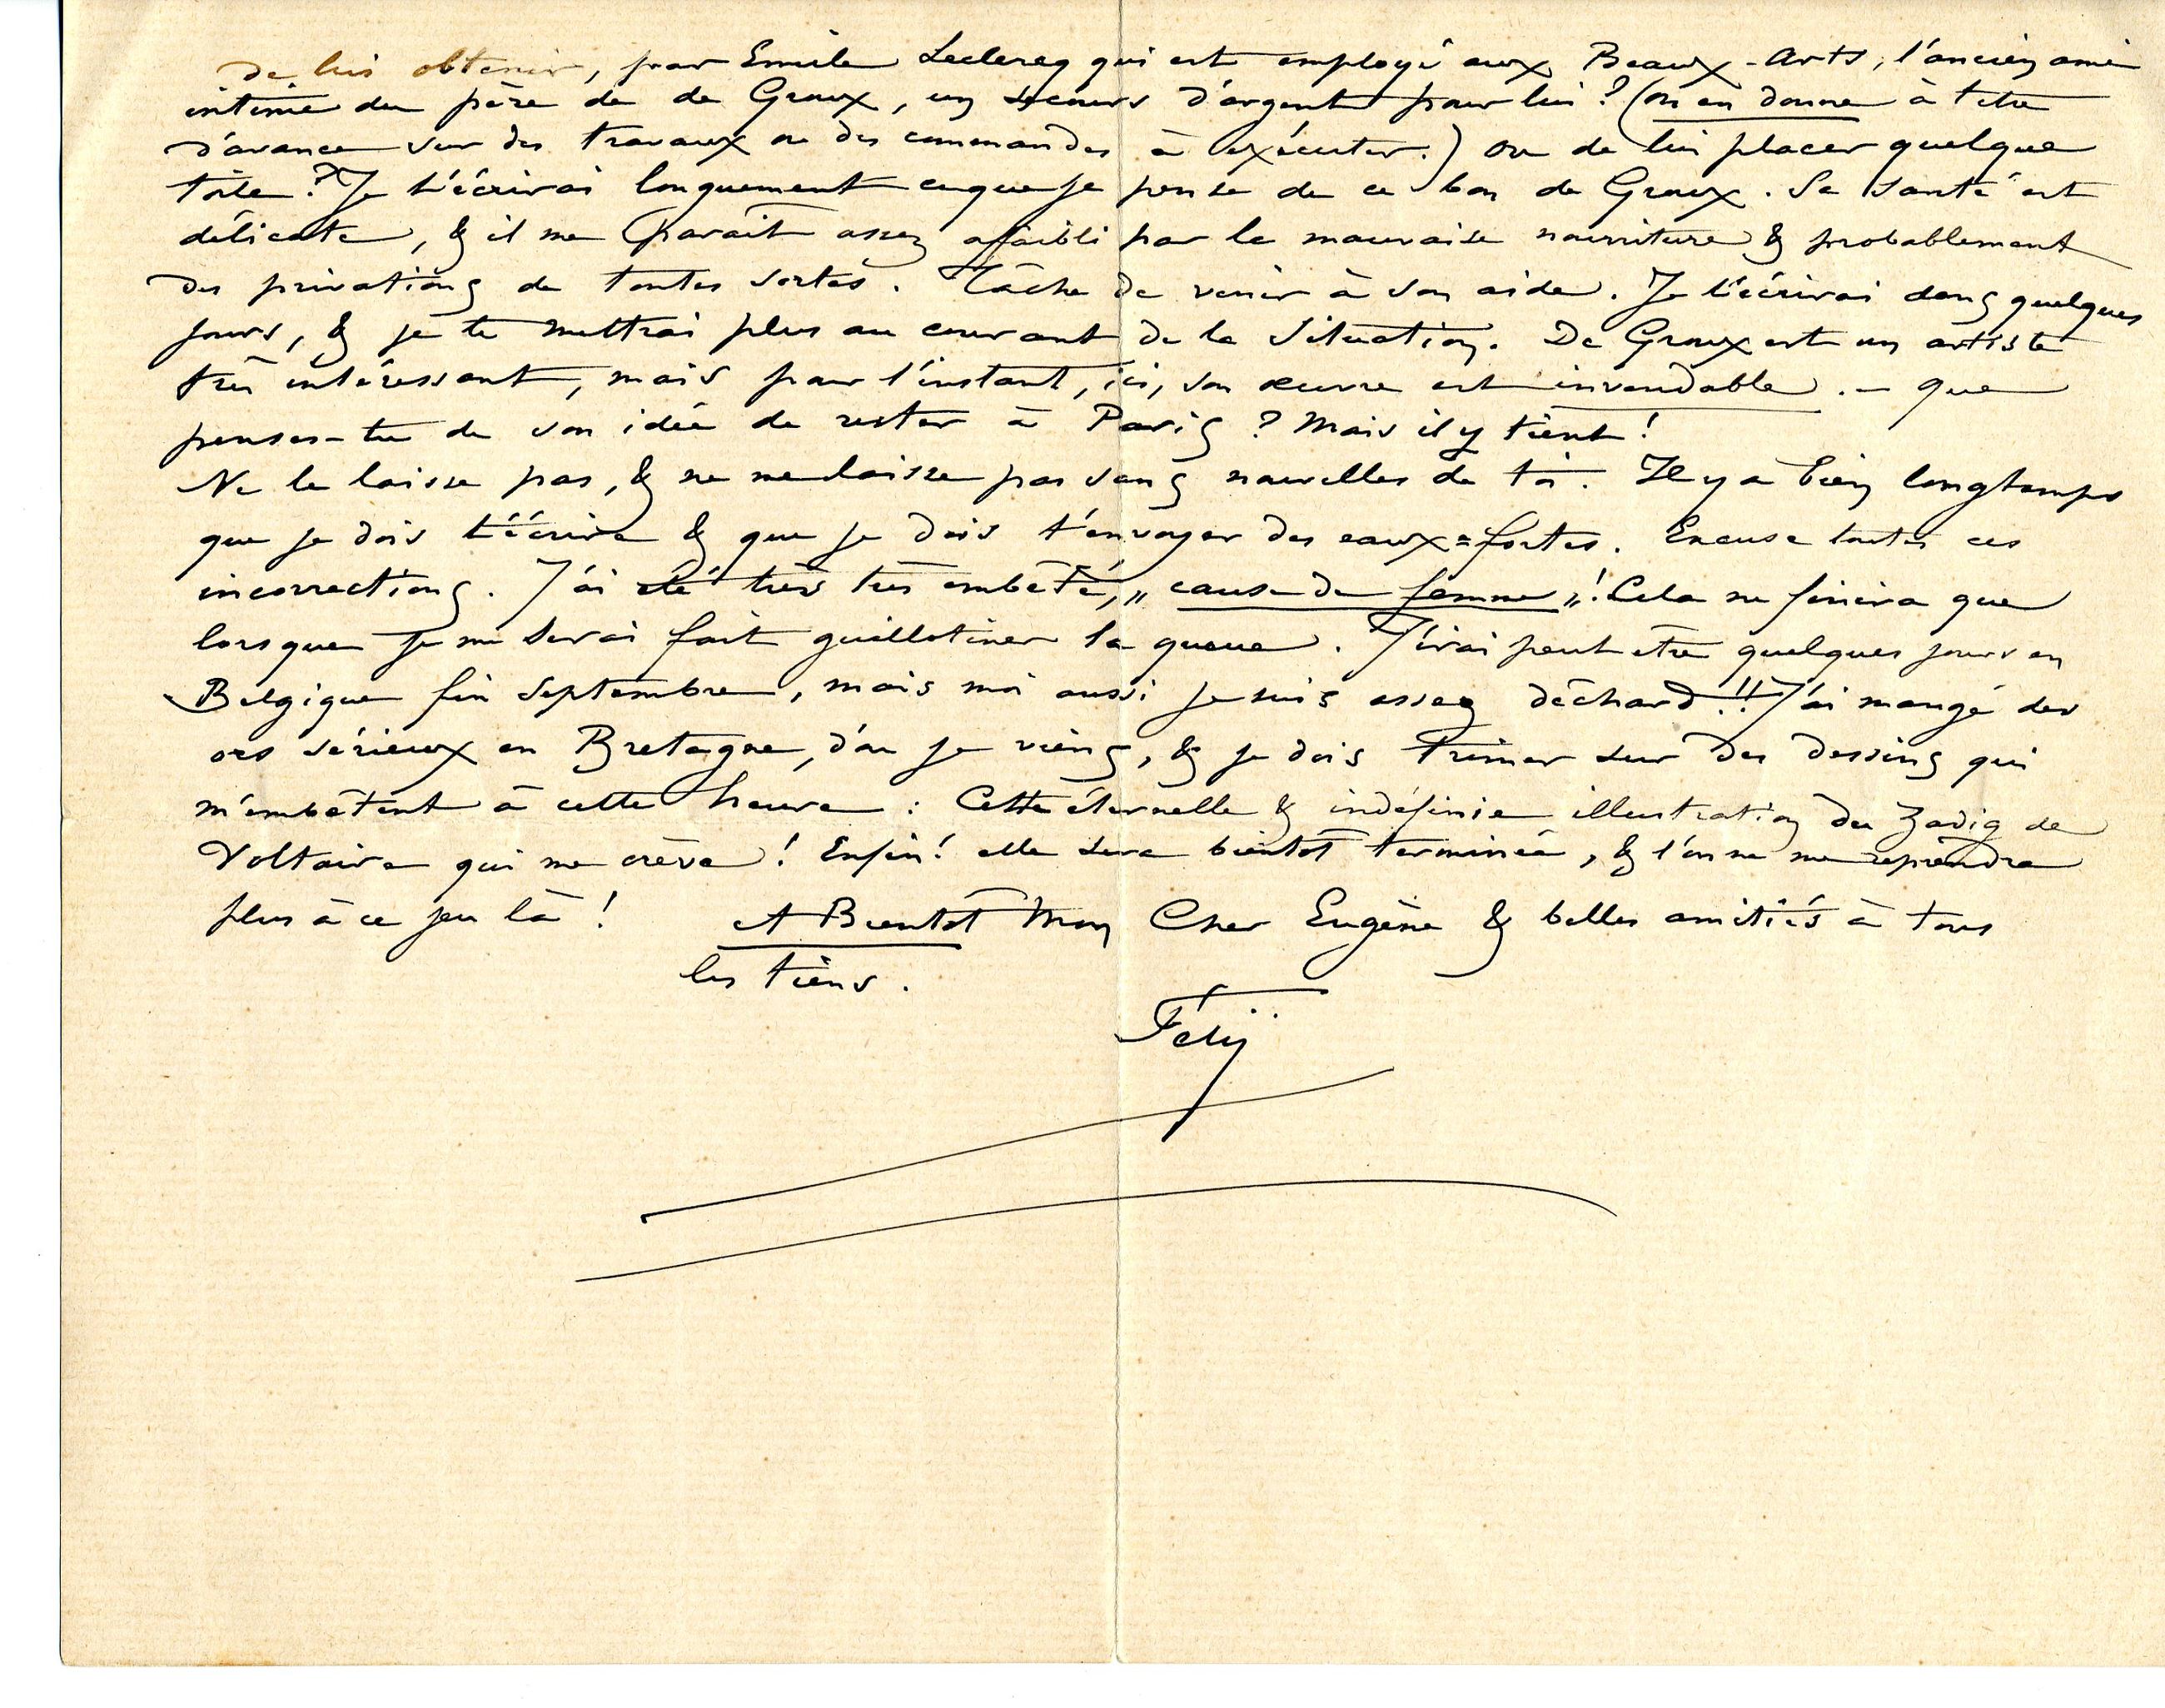 de lui obtenir, par Emile Leclercq qui est employé aux Beaux-Arts, l'ancien ami
intime du père de de Groux, un secours d'argent pour lui ? (on en donne à titre
d'avance sur des travaux ou des commandes à exécuter.) ou de lui placer quelque
toile ? Je t'écrirai longuement ce que je pense de ce bon de Groux. Sa santé est
délicate, & il me parait assez affaibli par la mauvaise nourriture & probablement
des privations de toutes sortes. Tâche de venir à son aide. Je t'écrirai dans quelques
jours, & je te mettrai plus au courant de la situation. De Groux est un artiste
très intéressant, mais pour l'instant, ici, son œuvre est invendable. – que
penses-tu de son idée de rester à Paris ? Mais il y tient !
Ne le laisse pas, & ne me laisse pas sans nouvelles de toi. Il y a bien longtemps
que je dois t'écrire & que je dois t'envoyer des eaux=fortes. Excuse toutes ces
incorrections. J'ai été très très embêté, „ cause de femme „! Cela ne finira que
lorsque je me serai fait guillotiner la queue. J'irai peut etre quelques jours en
Belgique fin Septembre, mais moi aussi je suis assez déchard !! J'ai mangé des
ors sérieux en Bretagne, d'où je viens, & je dois trimer sur des dessins qui
m'embêtent à cette heure : Cette éternelle & indéfinie illustration du Zadig de
Voltaire qui me crève ! Enfin ! elle sera bientôt terminée, & l'on ne me reprendra
plus à ce jeu là ! A Bientôt Mon Cher Eugène & belles amitiés à tous
les tiens.
Fély